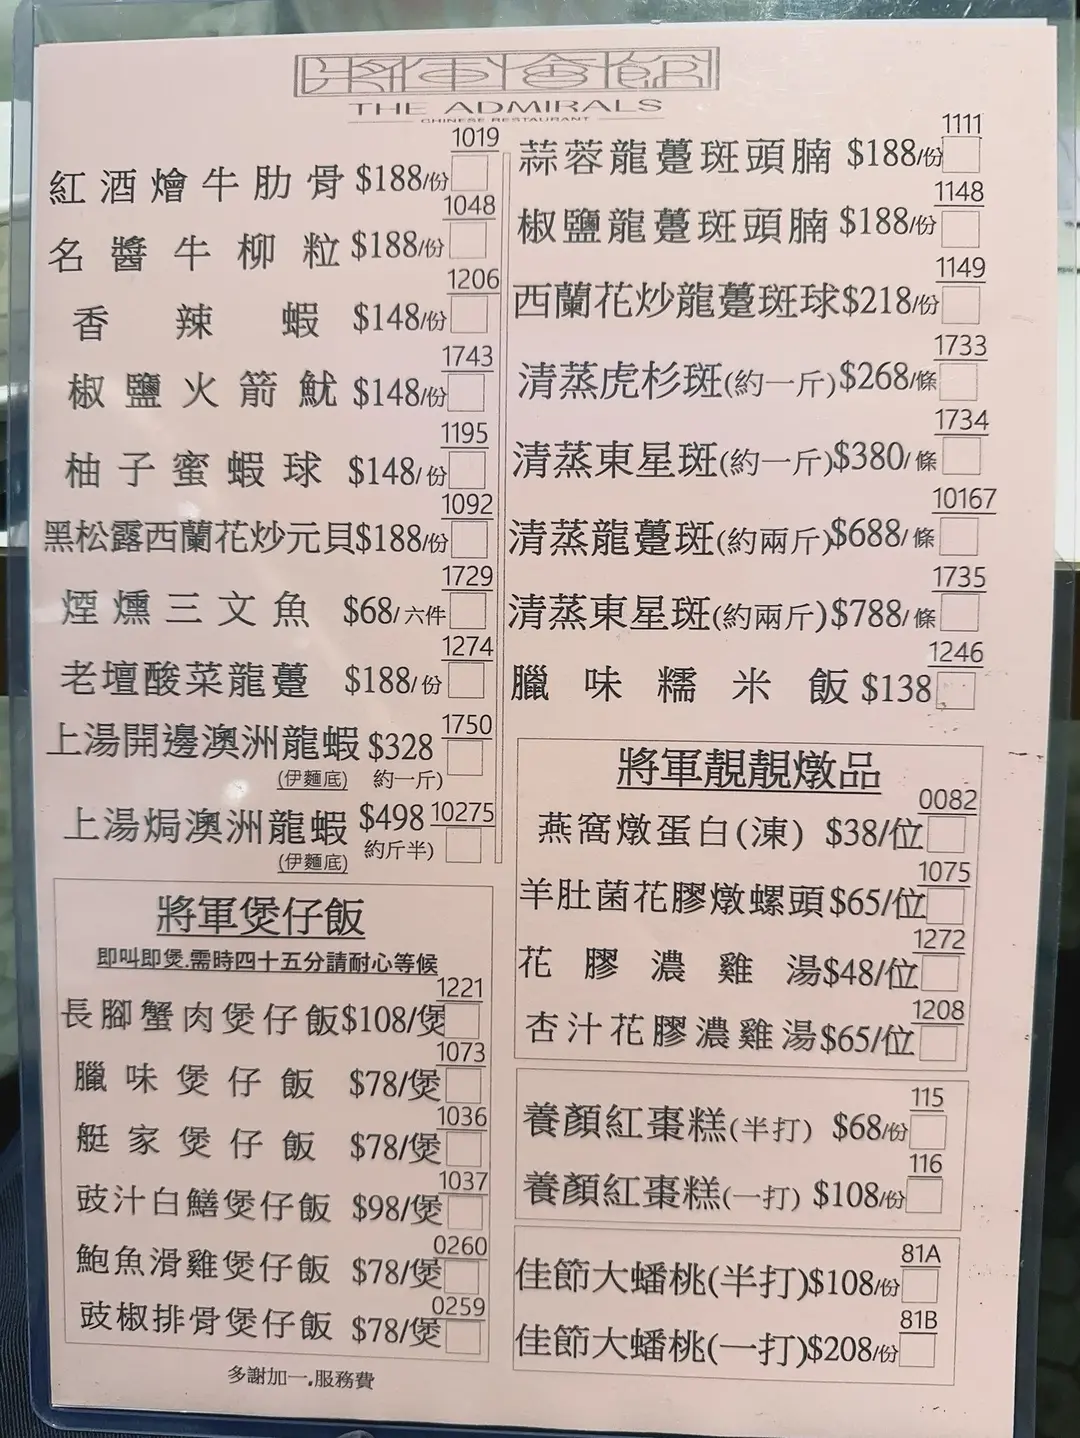 將軍會館
THE ADMIRALS
CHINESE RESTAURANT
1019
紅酒燴牛肋骨 $188/份
1048
名醬牛柳粒 $188/份
1206
香辣蝦 $148/份
1743
椒鹽火箭魷 $148/份
1195
柚子蜜蝦球 $148/份
1092
黑松露西蘭花炒元貝 $188/份
1729
煙燻三文魚 $68/六件
1274
老壇酸菜龍躉 $188/份
1750
上湯開邊澳洲龍蝦 $328
(伊麵底) 約一斤)
10275
上湯焗澳洲龍蝦 $498
(伊麵底) 約斤半)
將軍煲仔飯
即叫即煲.需時四十五分請耐心等候
1221
長腳蟹肉煲仔飯 $108/煲
1073
臘味煲仔飯 $78/煲
1036
艇家煲仔飯 $78/煲
1037
豉汁白鱔煲仔飯 $98/煲
0260
鮑魚滑雞煲仔飯 $78/煲
0259
豉椒排骨煲仔飯 $78/煲
多謝加一.服務費
1111
蒜蓉龍躉斑頭腩 $188/份
1148
椒鹽龍躉斑頭腩 $188/份
1149
西蘭花炒龍躉斑球 $218/份
1733
清蒸虎杉斑(約一斤) $268/條
1734
清蒸東星斑(約一斤) $380/條
10167
清蒸龍躉斑(約兩斤) $688/條
1735
清蒸東星斑(約兩斤) $788/條
1246
臘味糯米飯 $138
將軍靚靚燉品
0082
燕窩燉蛋白(涷) $38/位
1075
羊肚菌花膠燉螺頭 $65/位
1272
花膠濃雞湯 $48/位
1208
杏汁花膠濃雞湯 $65/位
115
養顏紅棗糕(半打) $68/份
116
養顏紅棗糕(一打) $108/份
81A
佳節大蟠桃(半打) $108/份
81B
佳節大蟠桃(一打) $208/份